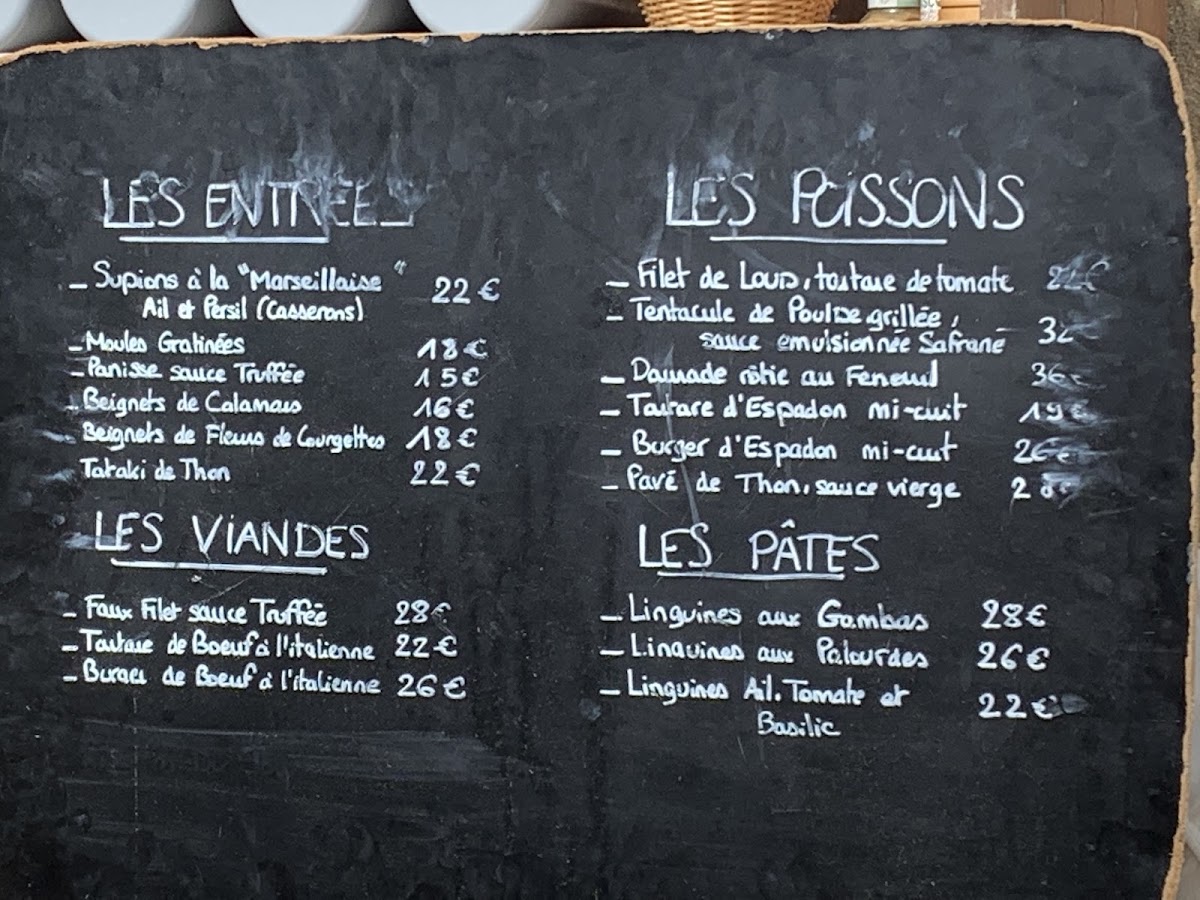 LES ENTRÉES
- Supions à la "Marseillaise" 22€
Ail et Persil (Casserons)
- Moules Gratinées 18€
- Panisse sauce Truffée 15€
- Beignets de Calamars 16€
Beignets de Fleurs de Courgettes 18€
Tataki de Thon 22€
LES VIANDES
- Faux Filet sauce Truffée 28€
- Tartare de Boeuf à l'italienne 22€
- Burger de Boeuf à l'italienne 26€
LES POISSONS
- Filet de Loup, tartare de tomate
- Tentacule de Poulpe grillée,
sauce emulsionnée Safrané
- Daurade rôtie au Fenouil 36€
- Tartare d'Espadon mi-cuit 19€
- Burger d'Espadon mi-cuit 26€
- Pavé de Thon, sauce vierge
LES PÂTES
- Linguines aux Gambas 28€
- Linguines aux Palourdes 26€
- Linguines Ail, Tomate et 22€
Basilic